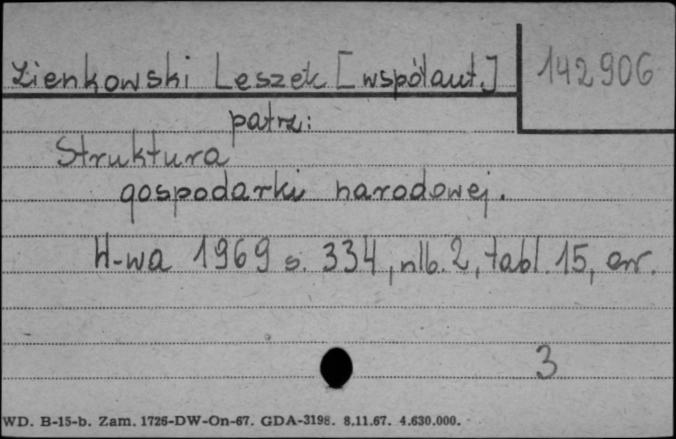 Zienkowski Leszek [współaut.] 142906
patrz:
Struktura
gospodarki narodowej.
W-wa 1969 s. 334, nlb. 2, tabl. 15, err.
3
WD. B-15-b. Zam. 1726-DW-On-67. GDA-3198. 8.11.67. 4.630.000.